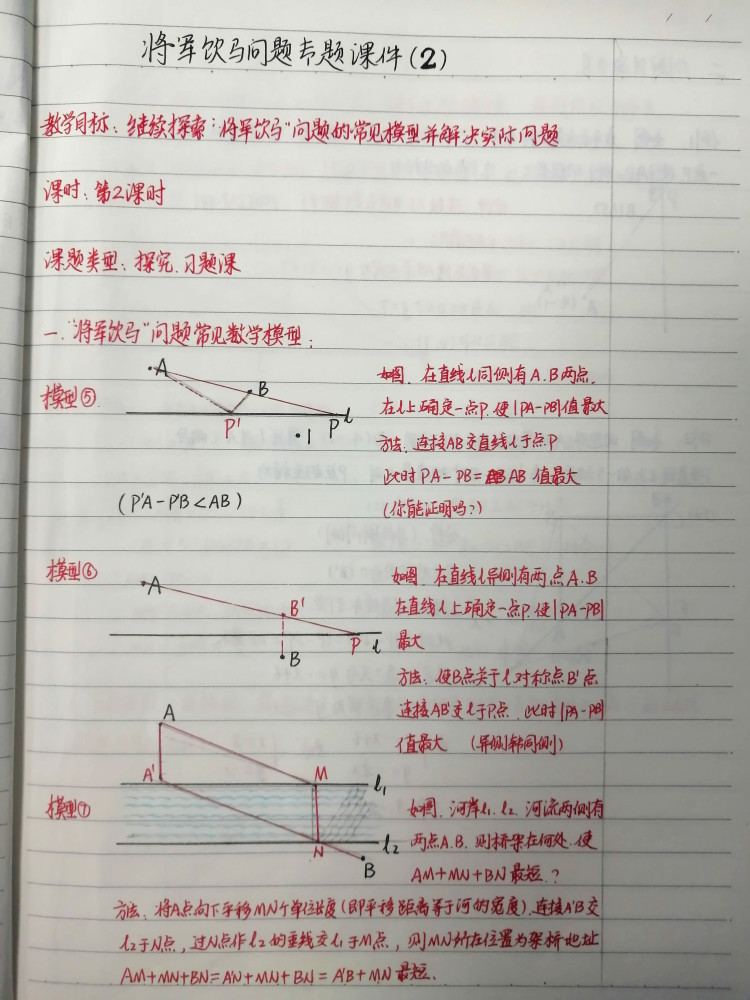 将军饮马问题专题课件(2)
教学目标：继续探索"将军饮马"问题的常见模型并解决实际问题
课时：第2课时
课题类型：探究.习题课
一."将军饮马"问题常见数学模型：
模型⑤
A
B
P'
P
l
(P'A-P'B<AB)
如图.在直线l同侧有A.B两点.
在l上确定一点P.使|PA-PB|值最大
方法:连接AB交直线l于点P
此时PA-PB=AB值最大
(你能证明吗?)
模型⑥
A
B'
P
l
B
如图.在直线l异侧有两点A.B
在直线l上确定一点P.使|PA-PB|
最大
方法:使B点关于l对称点B'点
连接AB'交l于P点.此时|PA-PB|
值最大 (异侧转同侧)
模型⑦
A
A'
M
l₁
N
l₂
B
如图.河岸l₁.l₂.河流两侧有
两点A.B.则桥架在何处.使
AM+MN+BN最短.?
方法:将A点向下平移MN个单位长度(即平移距离等于河的宽度).连接A'B交
l₂于N点,过N点作l₂的垂线交l₁于M点,则MN所在位置为架桥地址
AM+MN+BN=A'N+MN+BN=A'B+MN最短.